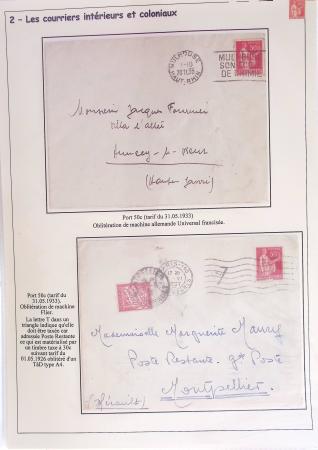 2 – Les courriers intérieurs et coloniaux
MULHOUSE
HAUT-RHIN
MUL
SON
DE CHIMIE
50c
Monsieur Jacques
Villa l'
(Haute Savoie)
Port 50c (tarif du 31.05.1933)
Oblitération de machine allemande Universal francisée.
Port 50c (tarif du
31.05.1933).
Oblitération de machine
Flier.
La lettre T dans un
triangle indique qu'elle
doit être taxée car
adressée Poste Restante
ce qui est matérialisé par
un timbre taxe à 30c
suivant tarif du
01.05.1926 oblitéré d'un
TàD type A4.
Mademoiselle Marguerite Maury
Poste Restante gde Poste
Montpellier
(Hérault)